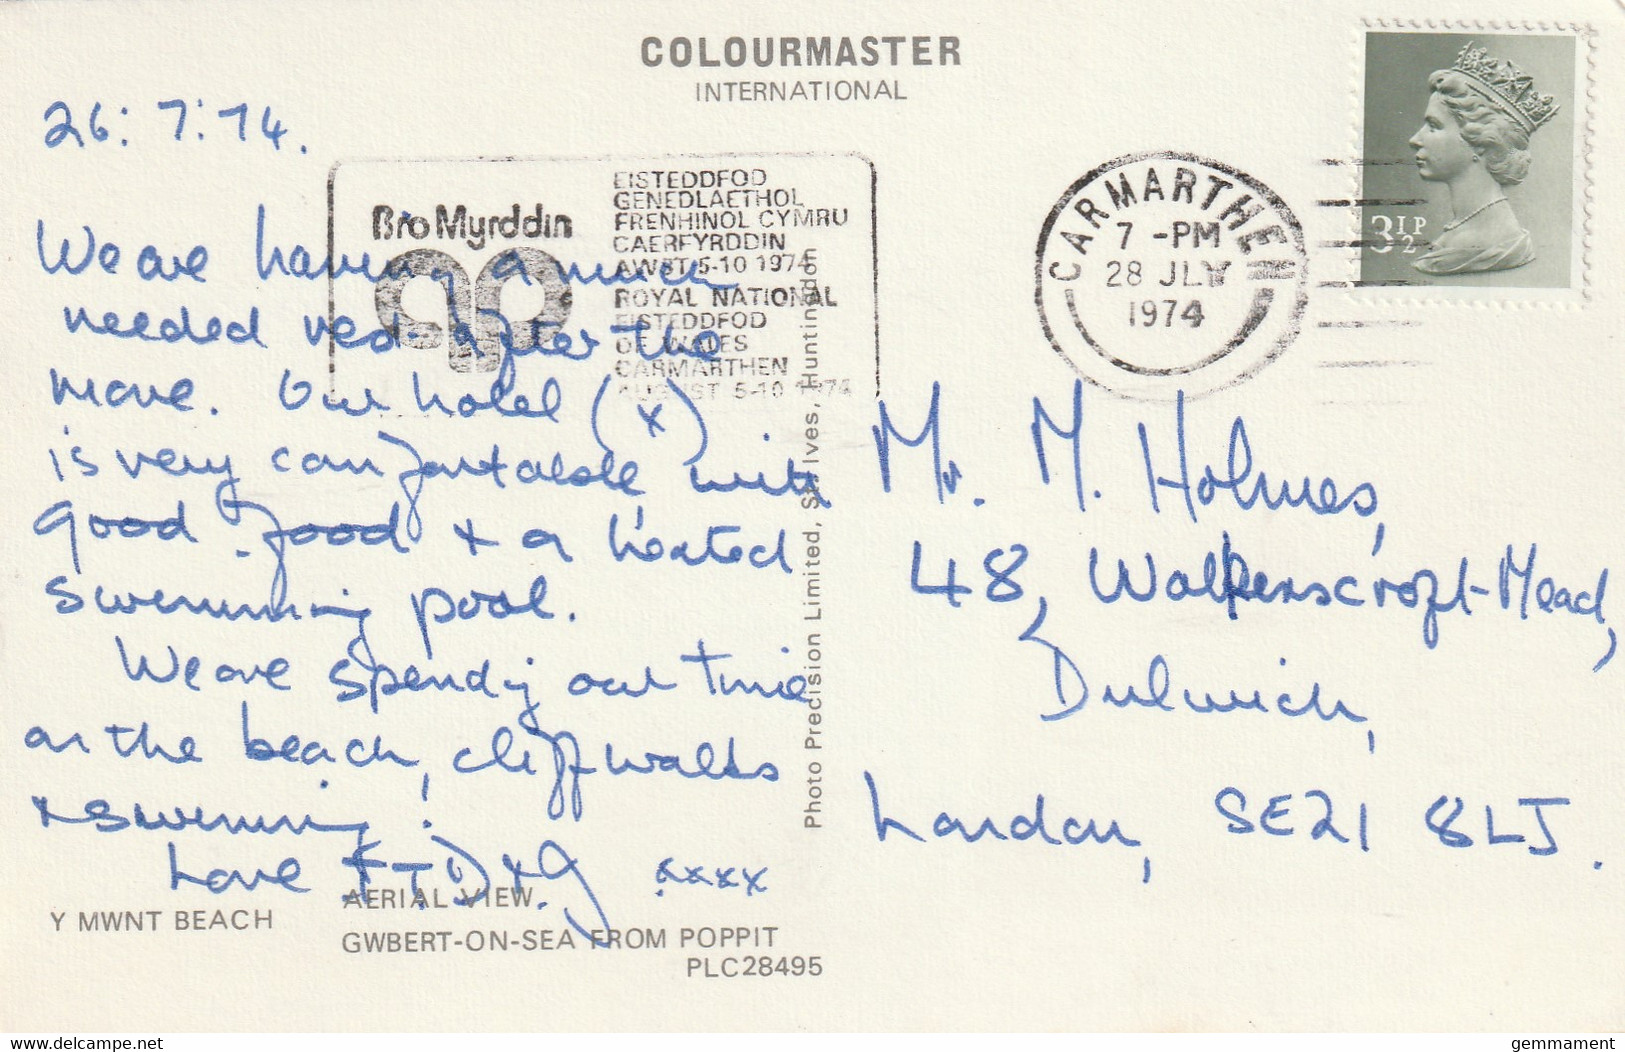 COLOURMASTER
INTERNATIONAL
26:7:74.
We are having a much
needed rest after the
move. Our hotel (x)
is very comfortable with
good food + a heated
swimming pool.
We are spending our time
on the beach, cliff walks
+ swimming!
Love F.T.D + G xxxx
Bro Myrddin
EISTEDDFOD
GENEDLAETHOL
FRENHINOL CYMRU
CAERFYRDDIN
AWST 5-10 1974
ROYAL NATIONAL
EISTEDDFOD
OF WALES
CARMARTHEN
AUGUST 5-10 1974
CARMARTHEN
7 -PM
28 JLY
1974
3½P
Mr. M. Holmes,
48, Walkerscroft-Mead,
Dulwich,
London, SE21 8LJ.
Photo Precision Limited, St. Ives, Huntingdon
Y MWNT BEACH
AERIAL VIEW.
GWBERT-ON-SEA FROM POPPIT
PLC28495
delcampe.net
gemmament